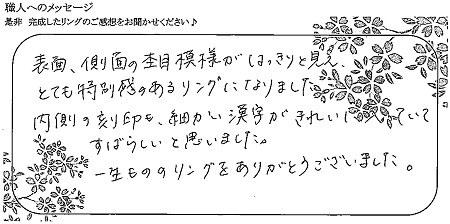 職人へのメッセージ
是非 完成したリングのご感想をお聞かせください♪
表面、側面の杢目模様がはっきりと見え、
とても特別感のあるリングになりました。
内側の刻印も、細かい漢字がきれいに っていて
すばらしいと思いました。
一生もののリングをありがとうございました。